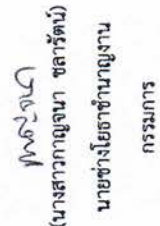 (นางสาวกาญจนา ชลารัตน์)
นายช่างโยธาชำนาญงาน
กรรมการ